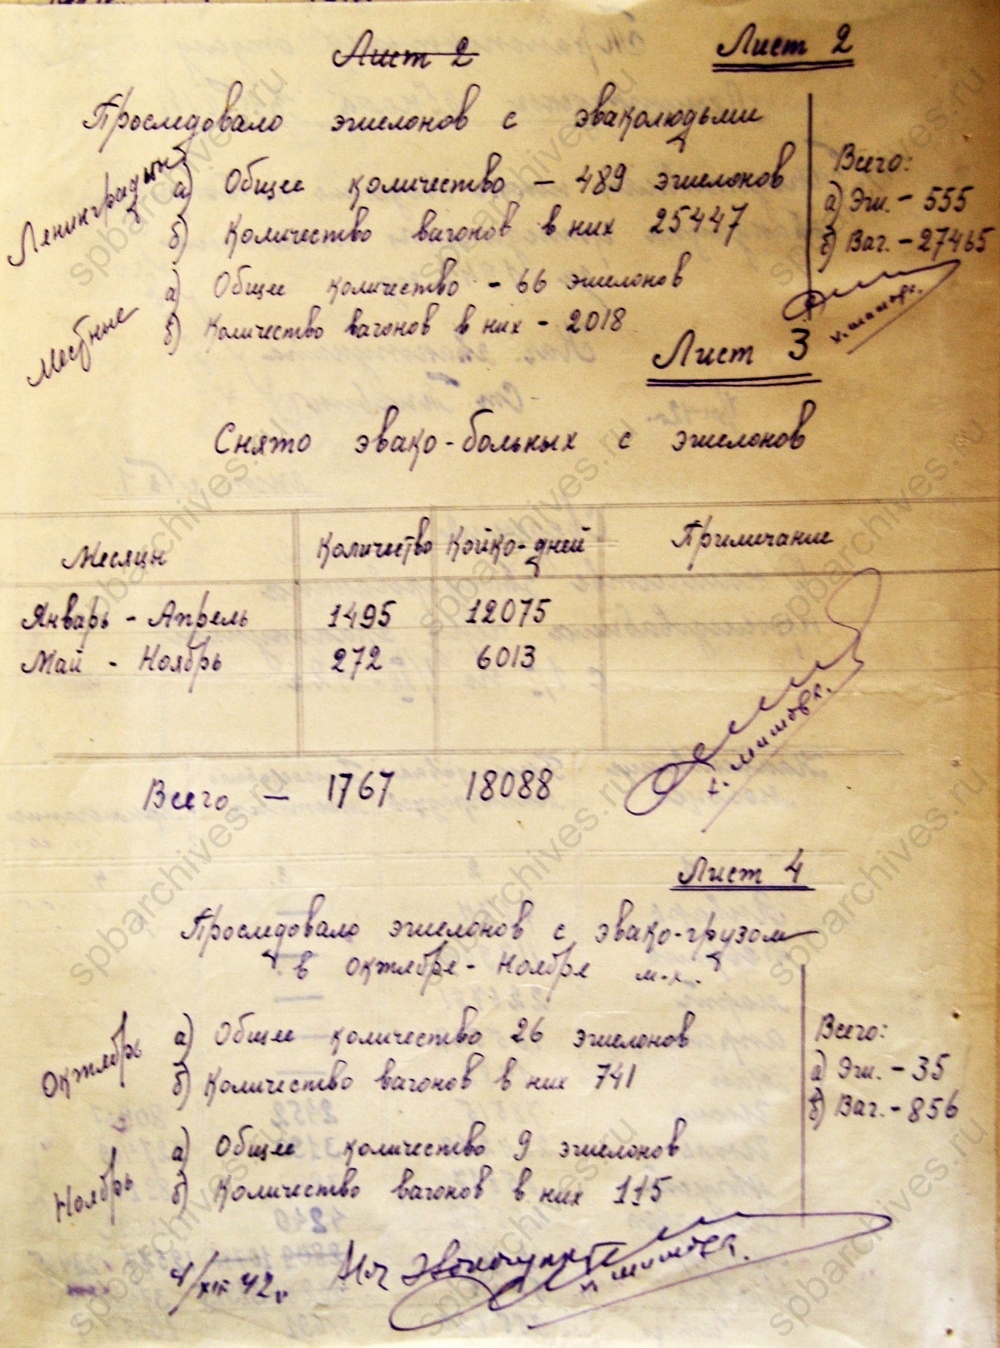 Лист 2
Лист 2
Проследовало эшелонов с эваколюдьми
Ленинградцы
а) Общее количество – 489 эшелонов
б) Количество вагонов в них 25447
Местные
а) Общее количество – 66 эшелонов
б) Количество вагонов в них – 2018
Всего:
а) Эш. – 555
б) Ваг. – 27465
Лист 3
Снято эвако-больных с эшелонов
Месяцы Количество Койко-дней Примечание
Январь – Апрель 1495 12075
Май – Ноябрь 272 6013
Всего — 1767 18088
Лист 4
Проследовало эшелонов с эвако-грузом
в Октябре – Ноябре м-х.
Октябрь
а) Общее количество 26 эшелонов
б) Количество вагонов в них 741
Ноябрь
а) Общее количество 9 эшелонов
б) Количество вагонов в них 115
Всего:
а) Эш. – 35
б) Ваг. – 856
4/XII 42г. Нач Эвакопункта
spbarchives.ru